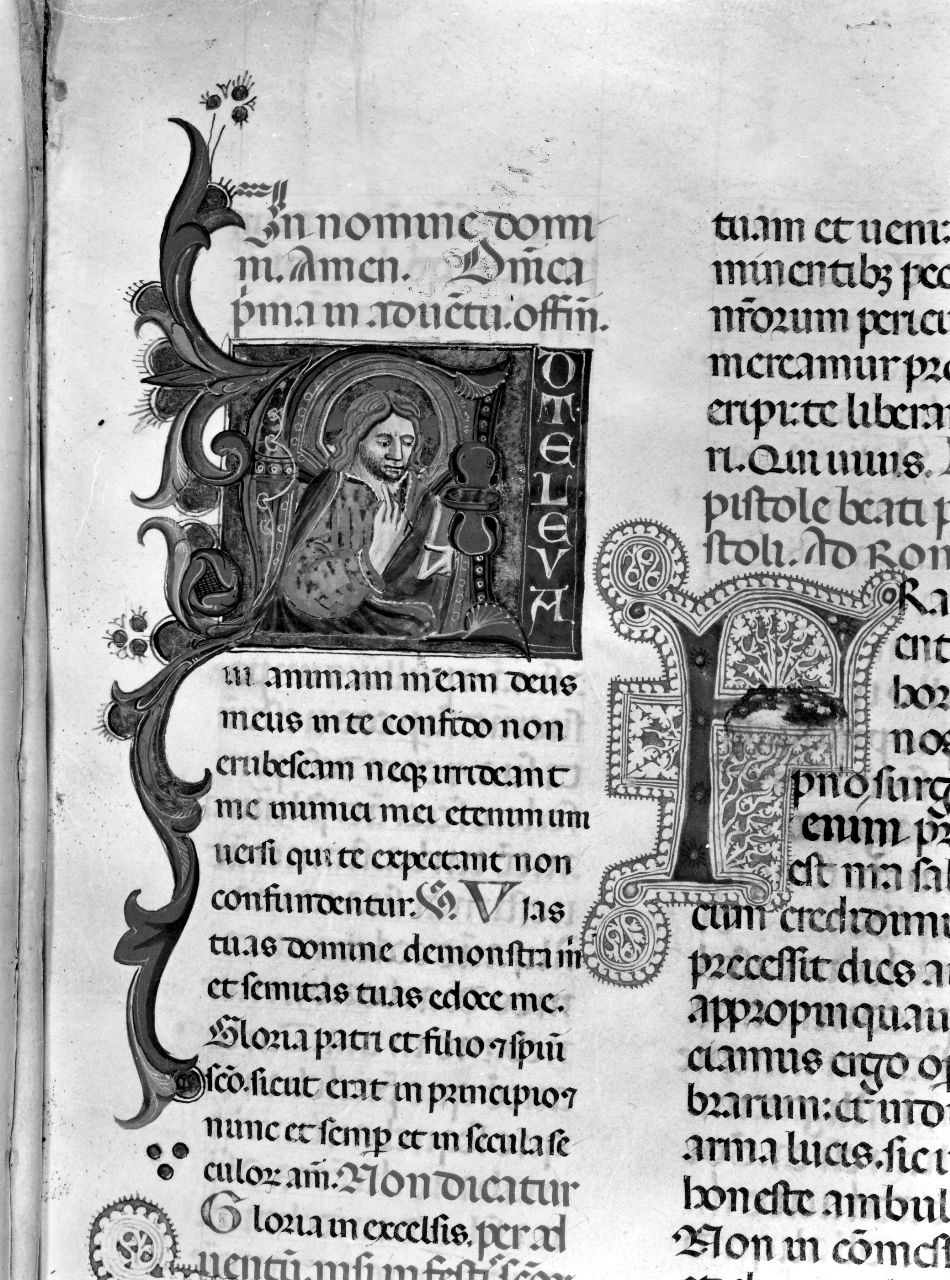 In nomine domi
ni. Amen. Dn̄ica
p̄ma in aduētu. offīn.
A
D TE LEVA
ui animam meam deus
meus in te confido non
erubescam neqꝫ irrideant
me inimici mei etenim um
uersi qui te expectant non
confundentur. V Vias
tuas domine demonstra m̄
et semitas tuas edoce me.
Gloria patri et filio ⁊ spiūi
scō. sicut erat in principio ⁊
nunc et semp̱ et in secula se
culoꝝ am̄. Non dicatur
Gloria in excelsis. per ad
uentū. nisi in festis scōꝝ
tuam et ueni:
minentibꝫ pec
nr̄orum pericu
mereamur pro
eripi: te libera
ri. Qui uiuis.
pistole beati p
stoli. Ad Rom
F Ra
ent
hor
nos
pno surg
enim pr
est nr̄a sal
cum credidimu
precessit dies a
appropinquau
ciamus ergo op
brarum: et ind
arma lucis. sic
honeste ambul
Non in cōmess